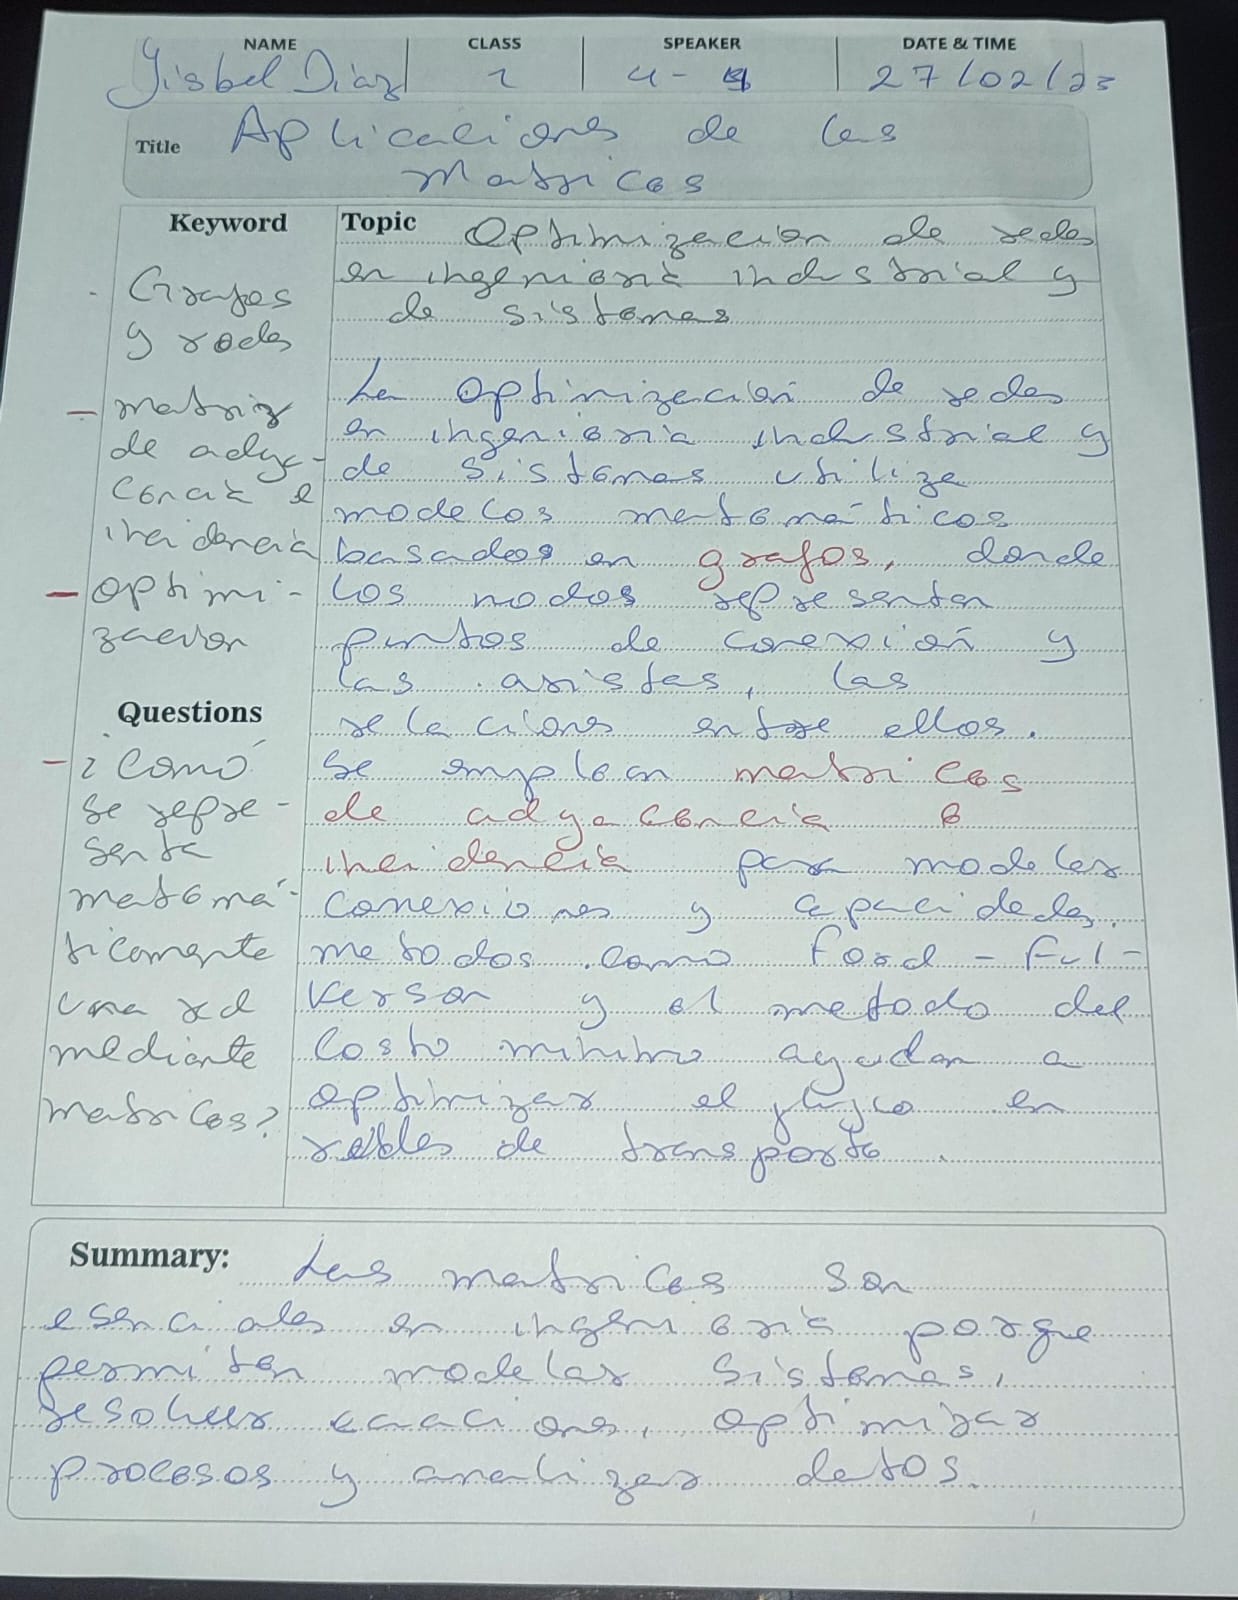 NAME CLASS SPEAKER DATE & TIME
Yisbel Diaz 2 4- 27/02/23
Title Aplicaciones de las
matrices
Keyword
Grafos
y redes
- matriz
de adya-
cencia e
incidencia
- optimi-
zacion
Questions
- ¿Comó
se repre-
senta
matemá-
ticamente
una red
mediante
matrices?
Topic Optimización de redes
en ingeniería industrial y
de sistemas
La optimización de redes
en ingeniería industrial y
de sistemas utiliza
modelos matemáticos
basados en grafos, donde
los nodos representan
puntos de conexión y
las aristas, las
relaciones entre ellos.
Se emplean matrices
de adyacencia e
incidencia para modelar
conexiones y capacidades.
metodos como Ford - Ful-
kerson y el metodo del
costo minimo ayudan a
optimizar el flujo en
redes de transporte.
Summary: Las matrices son
esenciales en ingeniería porque
permiten modelar sistemas,
resolver ecuaciones, optimizar
procesos y analizar datos.